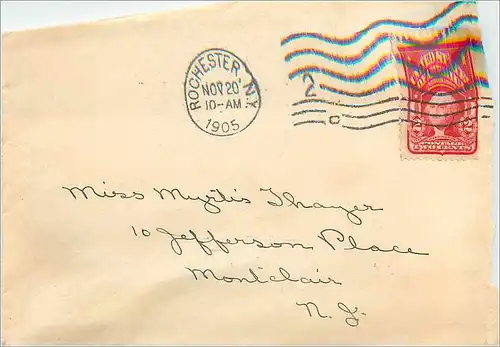 ROCHESTER, N.Y.
NOV 20
10-AM
1905
2
C
2 2
POSTAGE
TWO CENTS
Miss Myrtis Thayer
10 Jefferson Place
Montclair
N. J.